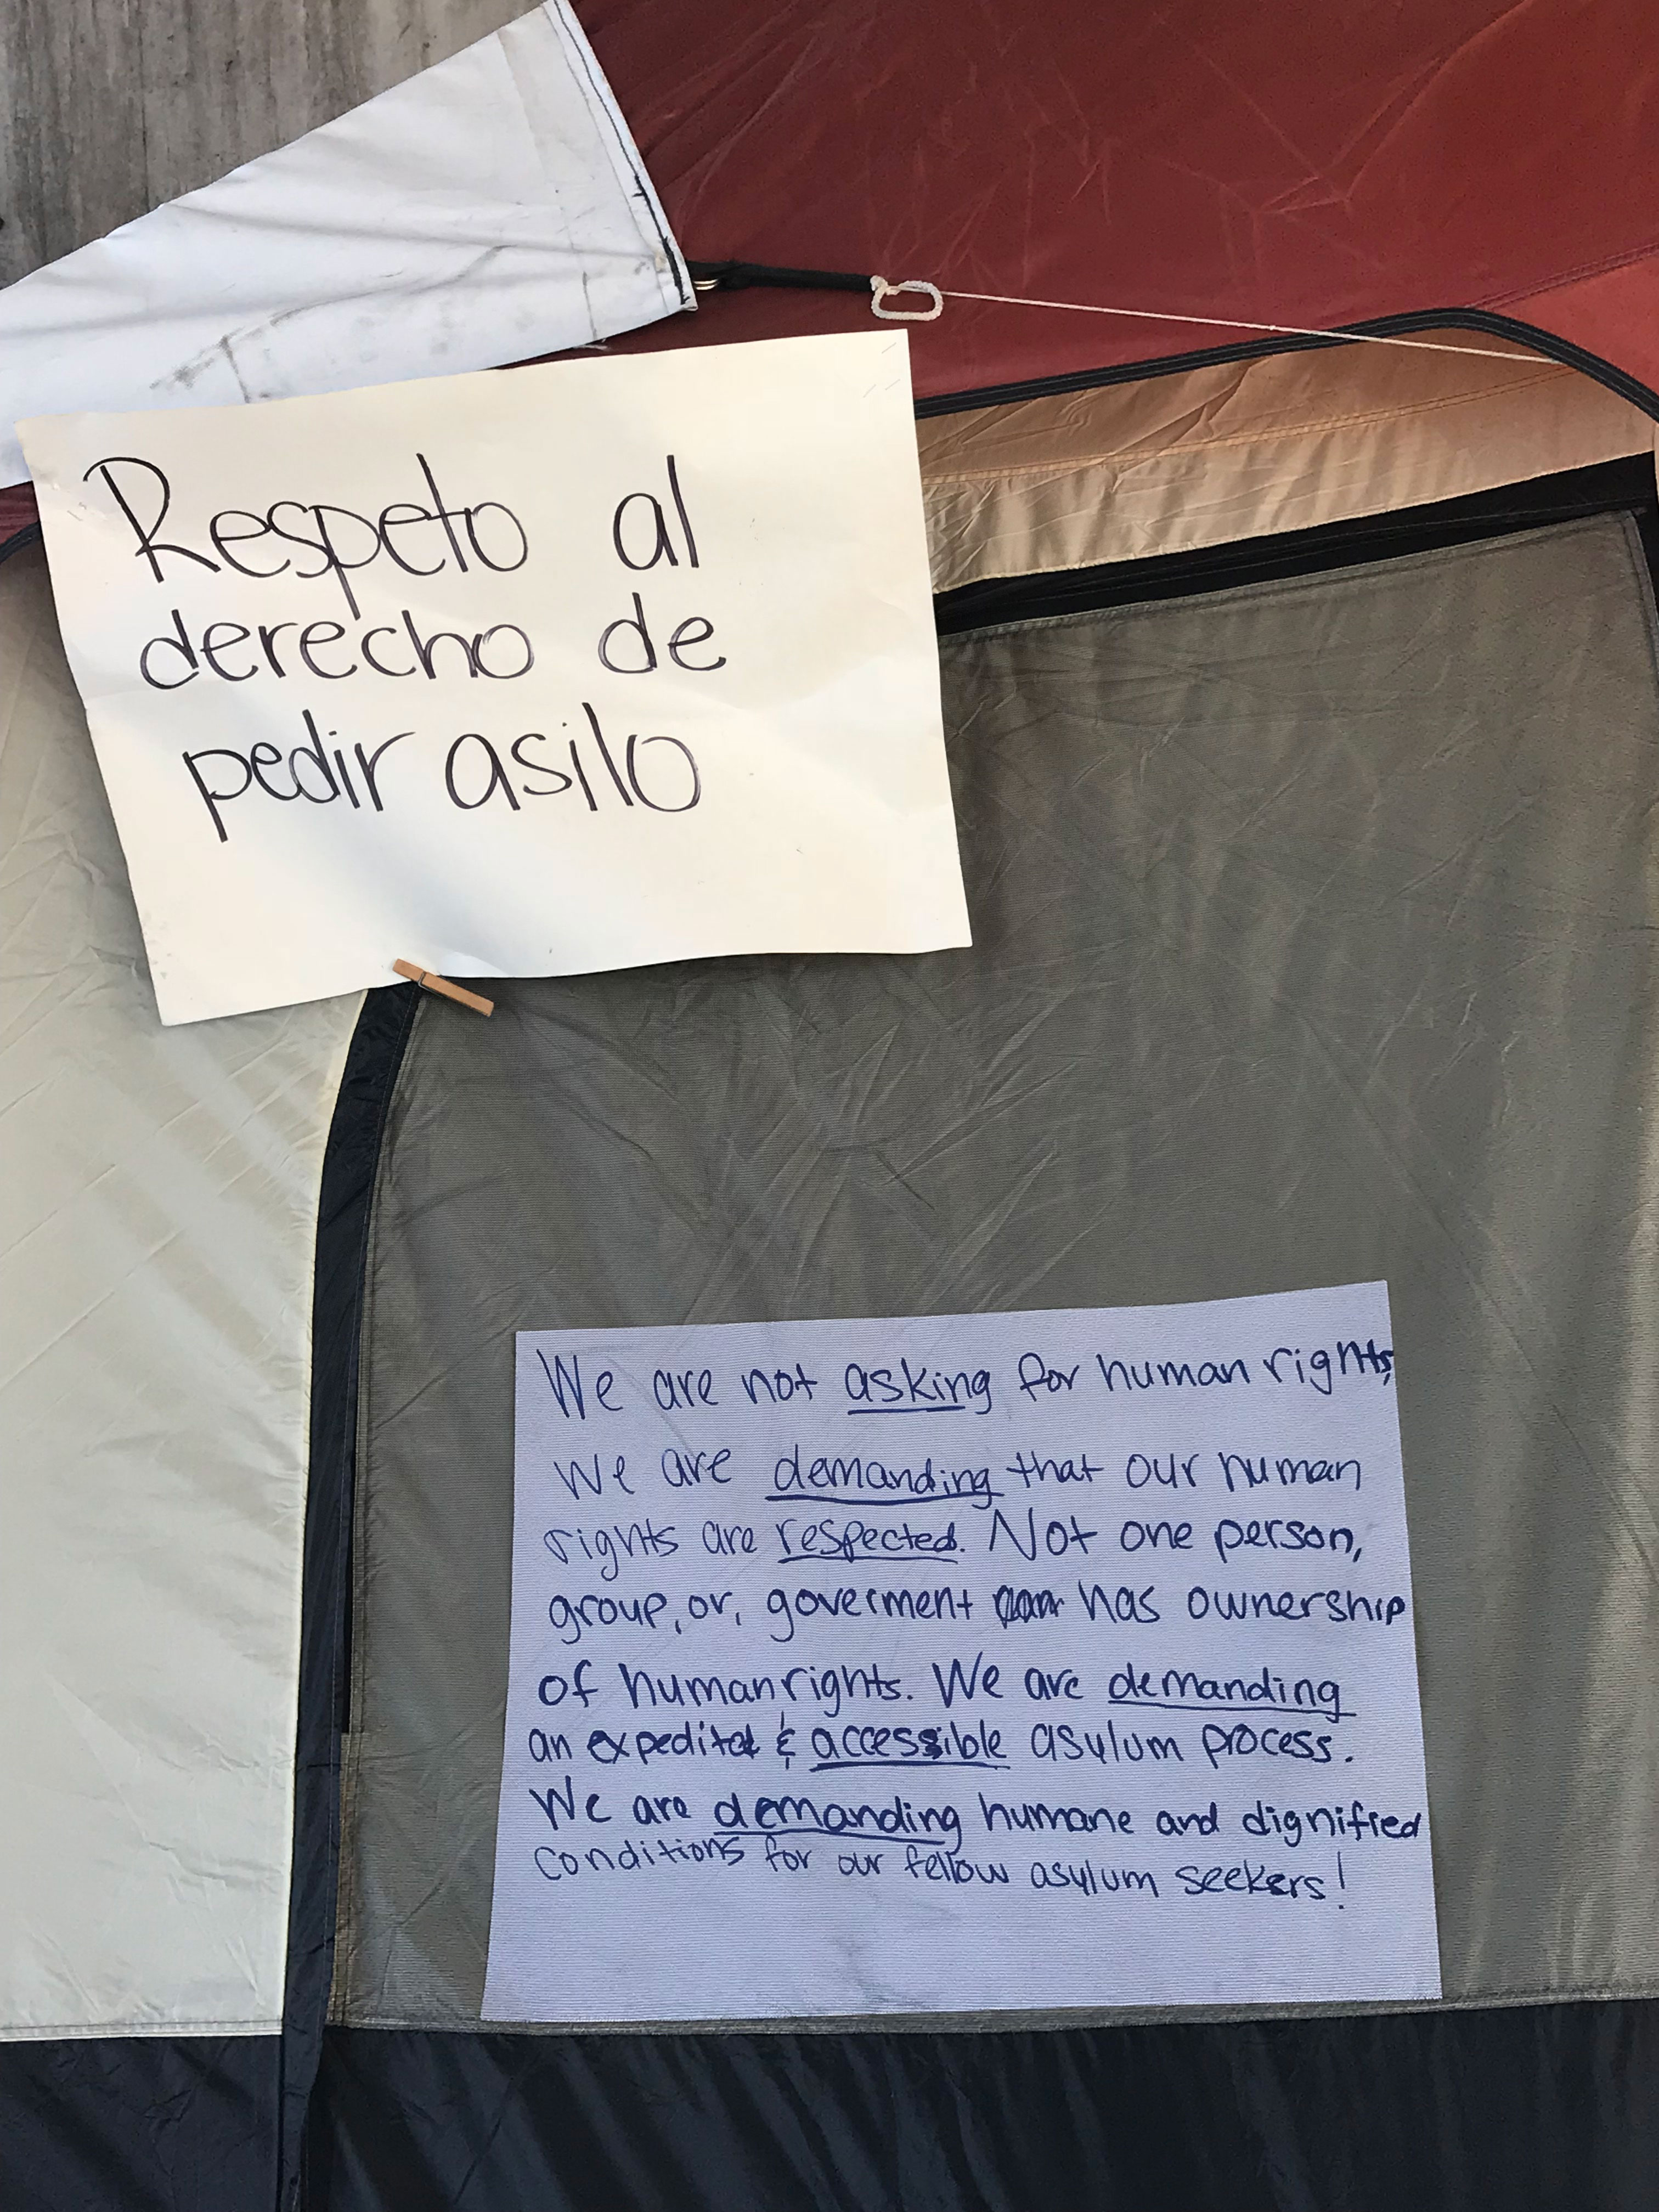 Respeto al
derecho de
pedir asilo
We are not asking for human rights,
we are demanding that our human
rights are respected. Not one person,
group, or, goverment has ownership
of human rights. We are demanding
an expedited & accessible asylum process.
We are demanding humane and dignified
conditions for our fellow asylum seekers!